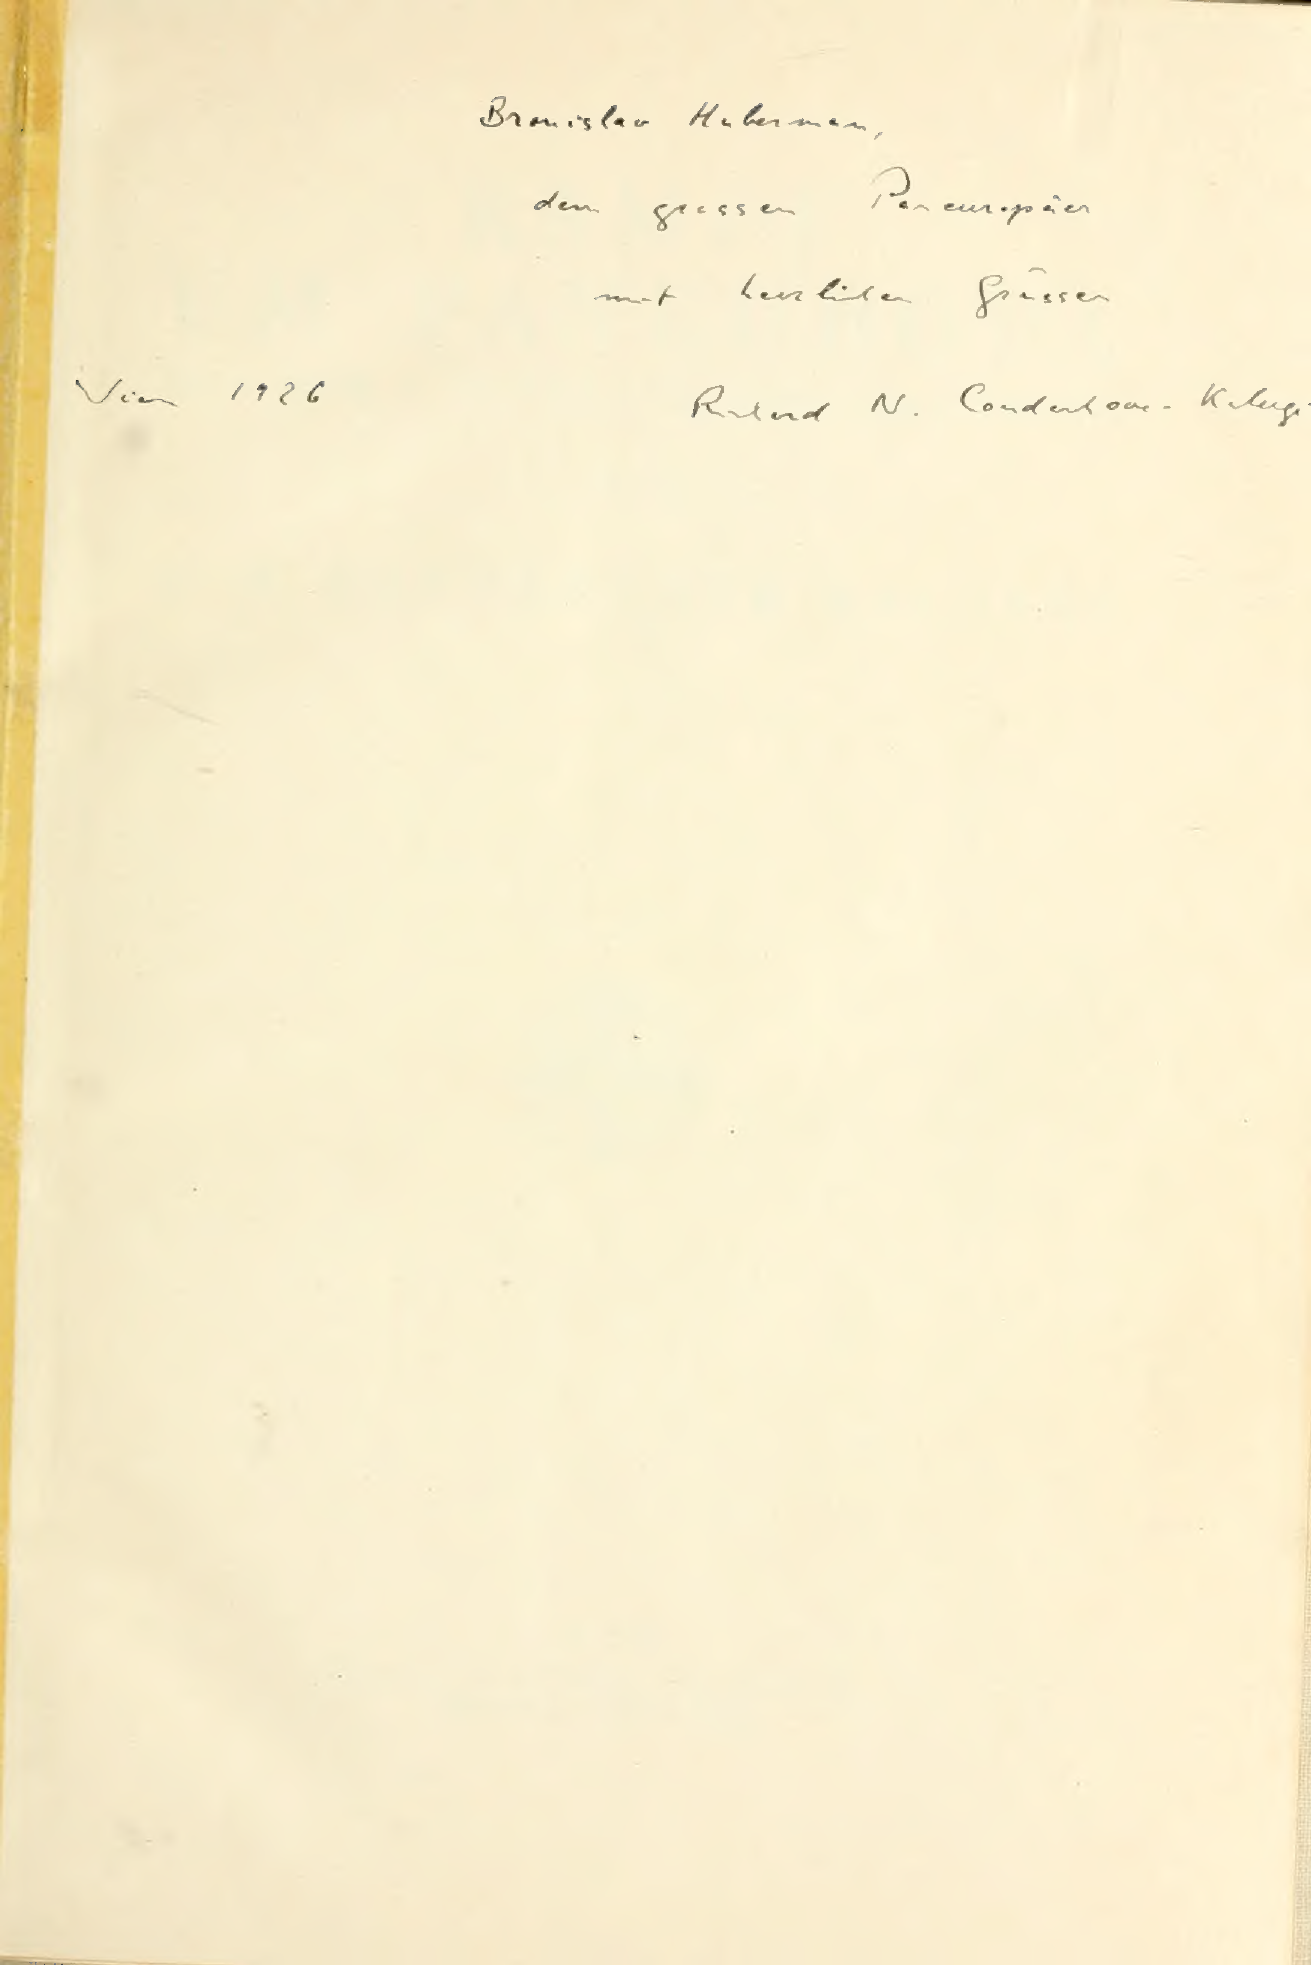 Bronislav Huberman,
dem grossen Paneuropäer
mit herzlichen Grüssen
Wien 1926 Richard N. Coudenhove-Kalergi